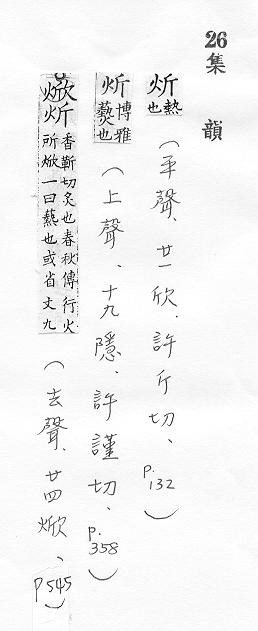 26
集韻
炘 熱也
(平聲、廿一欣、許斤切、p.132)
炘 博雅爇也
(上聲、十九隱、許謹切、p.358)
焮炘 香靳切炙也春秋傳行火所焮一曰爇也或省文九
(去聲、廿四焮、p545)